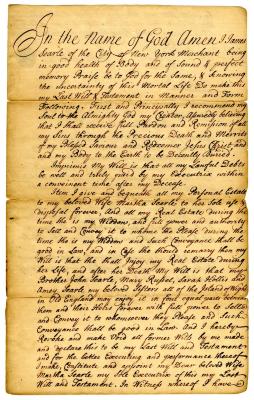 In the Name of God Amen I James
Searle of the City of New York Merchant being
in good health of Body and of Sound & perfect
memory Praise be to God for the Same, & knowing
the uncertainty of this Mortal Life Do make this
my Last Will & Testament in Manner and Form
Following. First and Principally I recommend my
Soul to the Almighty God my Creator, Assuredly believing
that I shall receive full Pardon and Remission of all
my Sins through the Precious Death and Merrits
of my Blessed Saviour and Redeemer Jesus Christ, and
my Body to the Earth to be Decently Buried
Imprimis My Will is that all my Lawful Debts
be well and truly paid by my Executrix within
a convenient time after my Decease.
Item I give and Bequeath all my Personal Estate
to my beloved Wife Martha Searle to her Sole use &
disposal forever, And all my Real Estate during the
time she is my Widdow, and full power and authority
to Sell and Convey it to whome she Please during the
time she is my Widdow and Such Conveyance shall be
good in Law, and in Case she should remarry then my
Will is that she shall Enjoy my Real Estate during
her Life, and after her Death My Will is that my
Brother John Searle, Mary Sarah
Amey Searle my beloved Sisters all of the Island of Wight
in Old England may enjoy it in four equal parts between
them and their Heirs forever with full power to Sell
and Convey it to whomsoever they Please and Such
Conveyance shall be good in Law. And I hereby
Revoke and make Void all former Wills by me made
and declare this to be my Last Will and Testament
and for the better Executing and performance thereof
I make, Constitute and appoint my Dear beloved Wife
Martha Searle my Sole Executrix of this my Last
Will and Testament. In Witness whereof I have